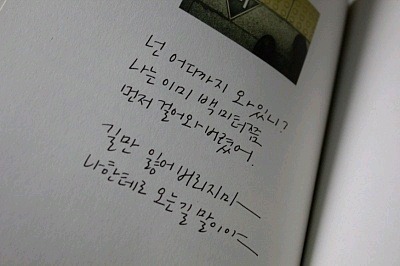 넌 어디까지 와있니?
나는 이미 백미터쯤
먼저 걸어와 버렸어.
길만 잃어 버리지마—
나한테로 오는길 말이야—